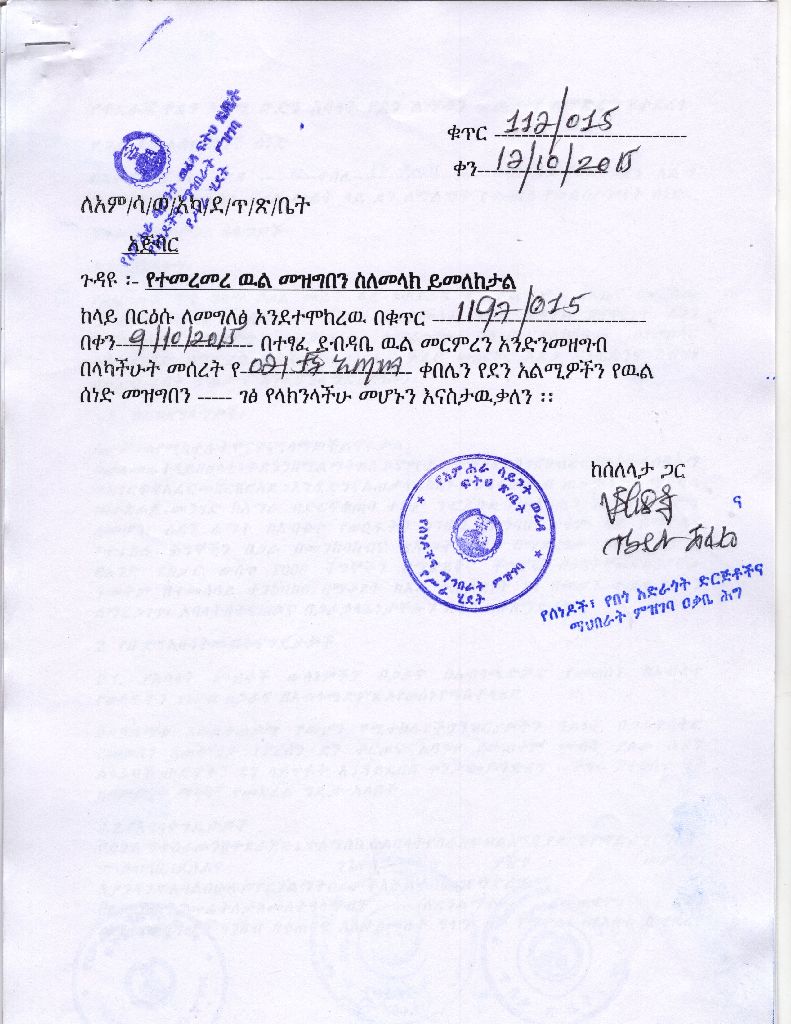 ቁጥር 112/015
ቀን 12/10/2015
ለአም/ሳ/ወ/አካ/ደ/ጥ/ጽ/ቤት
አጅባር
ጉዳዩ ፡- የተመረመረ ዉል መዝግበን ስለመላክ ይመለከታል
ከላይ በርዕሱ ለመግለፅ እንደተሞከረዉ በቁጥር 1197/015
በቀን 9/10/2015 በተፃፈ ደብዳቤ ዉል መርምረን እንድንመዘግብ
በላካችሁት መሰረት የ ቀበሌን የደን አልሚዎችን የዉል
ሰነድ መዝግበን ----- ገፅ የላክንላችሁ መሆኑን እናስታዉቃለን ፡፡
ከሰላለታ ጋር
የአምሐራ ሳይንት ወረዳ
ፍትህ ጽ/ቤት
የሰነዶችና ማኅበራት ምዝገባ
የሥራ ሂደት
የሰነዶች፣ የበጎ አድራጎት ድርጅቶችና
ማህበራት ምዝገባ ዐቃቤ ሕግ